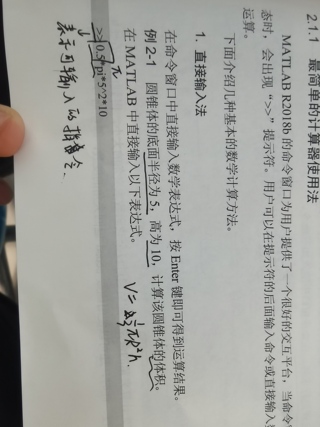 2.1.1 最简单的计算器使用法
MATLAB R2018b 的命令窗口为用户提供了一个很好的交互平台，当命令
态时，会出现“>>”提示符。用户可以在提示符的后面输入命令或直接输入
运算。
下面介绍几种基本的数学计算方法。
1. 直接输入法
在命令窗口中直接输入数学表达式，按 Enter 键即可得到运算结果。
例 2-1 圆锥体的底面半径为 5，高为 10，计算该圆锥体的体积。
在 MATLAB 中直接输入以下表达式。
V= ⅓πR²h.
π
>>0.5*pi*5^2*10
表示可输入的指令